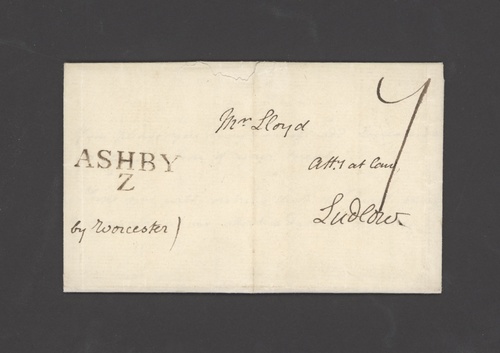 Mr Lloyd
Atty at Law
Ludlow.
ASHBY
Z
by Worcester)
7